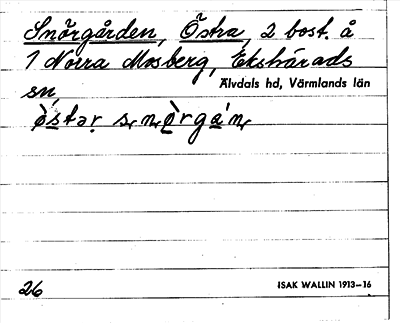 Snörgården, Östra, 2 bost. å
1 Norra Mosberg, Ekshärads
sn, Älvdals hd, Värmlands län
26 ISAK WALLIN 1913–16